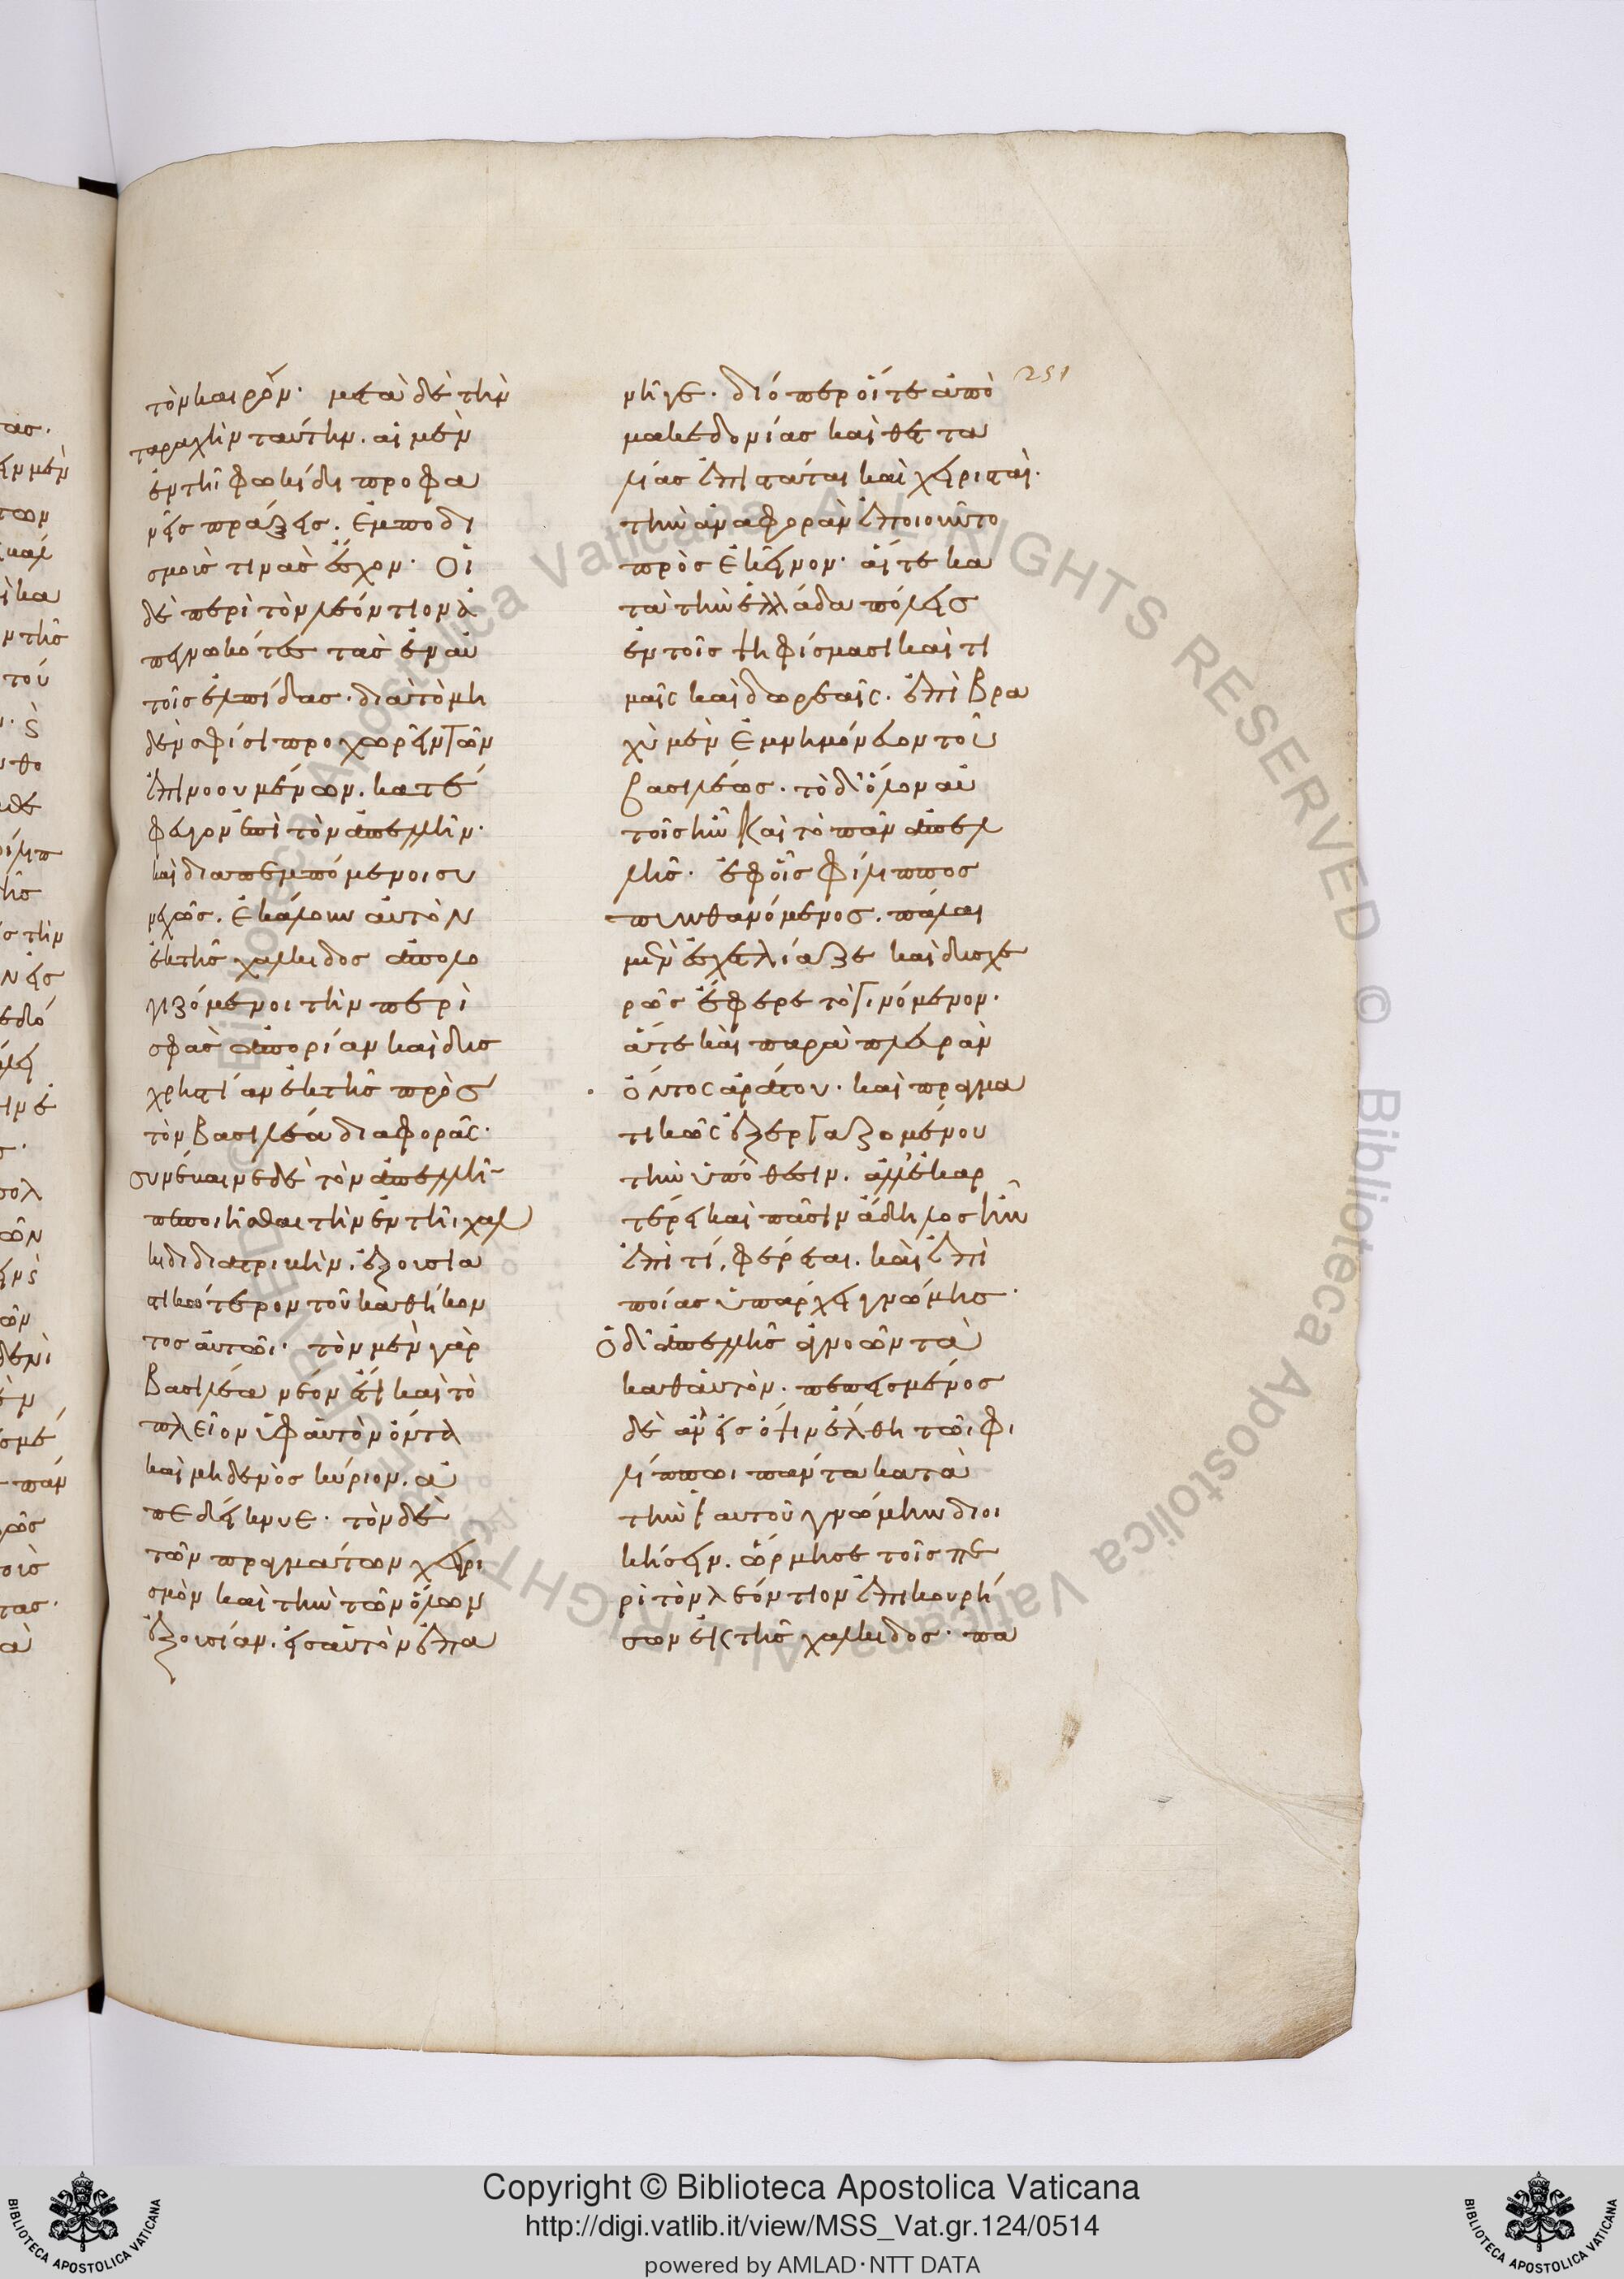 τὸν καιρόν. μετὰ δὲ τὴν
ταραχὴν ταύτην. αἱ μὲν
ἐν τῆι φωκίδι προφα
νεῖς πράξεις. ἐμποδι
σμοὺς τινὰς ἔσχον. Οἱ
δὲ περὶ τὸν λεόντιον ἀ
πεγνωκότες τὰς ἐν αὑ
τοῖς ἐλπίδας. διὰ τὸ μη
δὲν σφίσι προχωρεῖν τῶν
ἐπινοουμένων. κατέ
φευγον ἐπὶ τὸν ἀπελλῆν.
καὶ διαπεμπόμενοι συ
νεχῶς. ἐκάλουν αὐτὸν
ἐκ τῆς χαλκίδος ἀπολο
γιζόμενοι τὴν περὶ
σφᾶς ἀπορίαν καὶ δυσ
χρηστίαν ἐκ τῆς πρὸς
τὸν βασιλέα διαφορᾶς.
συνέβαινε δὲ τὸν ἀπελλῆν
πεποιῆσθαι τὴν ἐν τῆι χαλ
κίδι διατριβὴν. ἐξουσια
στικώτερον τοῦ καθήκον
τος αὐτῶι. τὸν μὲν γὰρ
βασιλέα νέον ἔτι καὶ τὸ
πλεῖον ὑφ αὑτὸν ὄντα
καὶ μηδενὸς κύριον. ἀ
πεδείκνυε. τὸν δὲ
τῶν πραγμάτων χειρι
σμὸν καὶ τὴν τῶν ὅλων
ἐξουσίαν. εἰς αὑτὸν ἐπα
251
νῆγε. διόπερ οἵ τε ἀπὸ
μακεδονίας καὶ θετα
λίας ἐπιστάται καὶ χειρισταὶ.
τὴν ἀναφορὰν ἐποιοῦντο
πρὸς ἐκεῖνον. αἵ τε κα
τὰ τὴν ἑλλάδα πόλεις
ἐν τοῖς ψηφίσμασι καὶ τι
μαῖς καὶ δωρεαῖς. ἐπὶ βρα
χὺ μὲν ἐμνημόνευον τοῦ
βασιλέως. τὸ δ' ὅλον αὐ
τοῖς ἦν καὶ τὸ πᾶν ἀπελ
λῆς. ἐφ οἷς φίλιππος
πυνθανόμενος. πάλαι
μὲν ἐσχετλίαζε καὶ δυσχε
ρῶς ἔφερε τὸ γινόμενον.
ἅτε καὶ παρὰ πλευρὰν
ὄντος ἀράτου. καὶ πραγμα
τικῶς ἐξεργαζομένου
τὴν ὑπόθεσιν. ἀλλ' ἐκαρ
τέρει καὶ πᾶσιν ἄδηλος ἦν
ἐπὶ τί, φέρεται. καὶ ἐπὶ
ποίας ὑπάρχει γνώμης.
Ὁ δ' ἀπελλῆς ἀγνοῶν τὰ
καθ αὑτὸν. πεπεισμένος
δὲ ἂν εἰς ὄψιν ἔλθη τῶι φι
λίππωι πάντα κατὰ
τὴν αὑτοῦ γνώμην διοι
κήσειν. ὥρμησε τοῖς πε
ρὶ τὸν λεόντιον ἐπικουρή
σων ἐκ τῆς χαλκίδος. πα
Copyright © Biblioteca Apostolica Vaticana
http://digi.vatlib.it/view/MSS_Vat.gr.124/0514
powered by AMLAD·NTT DATA